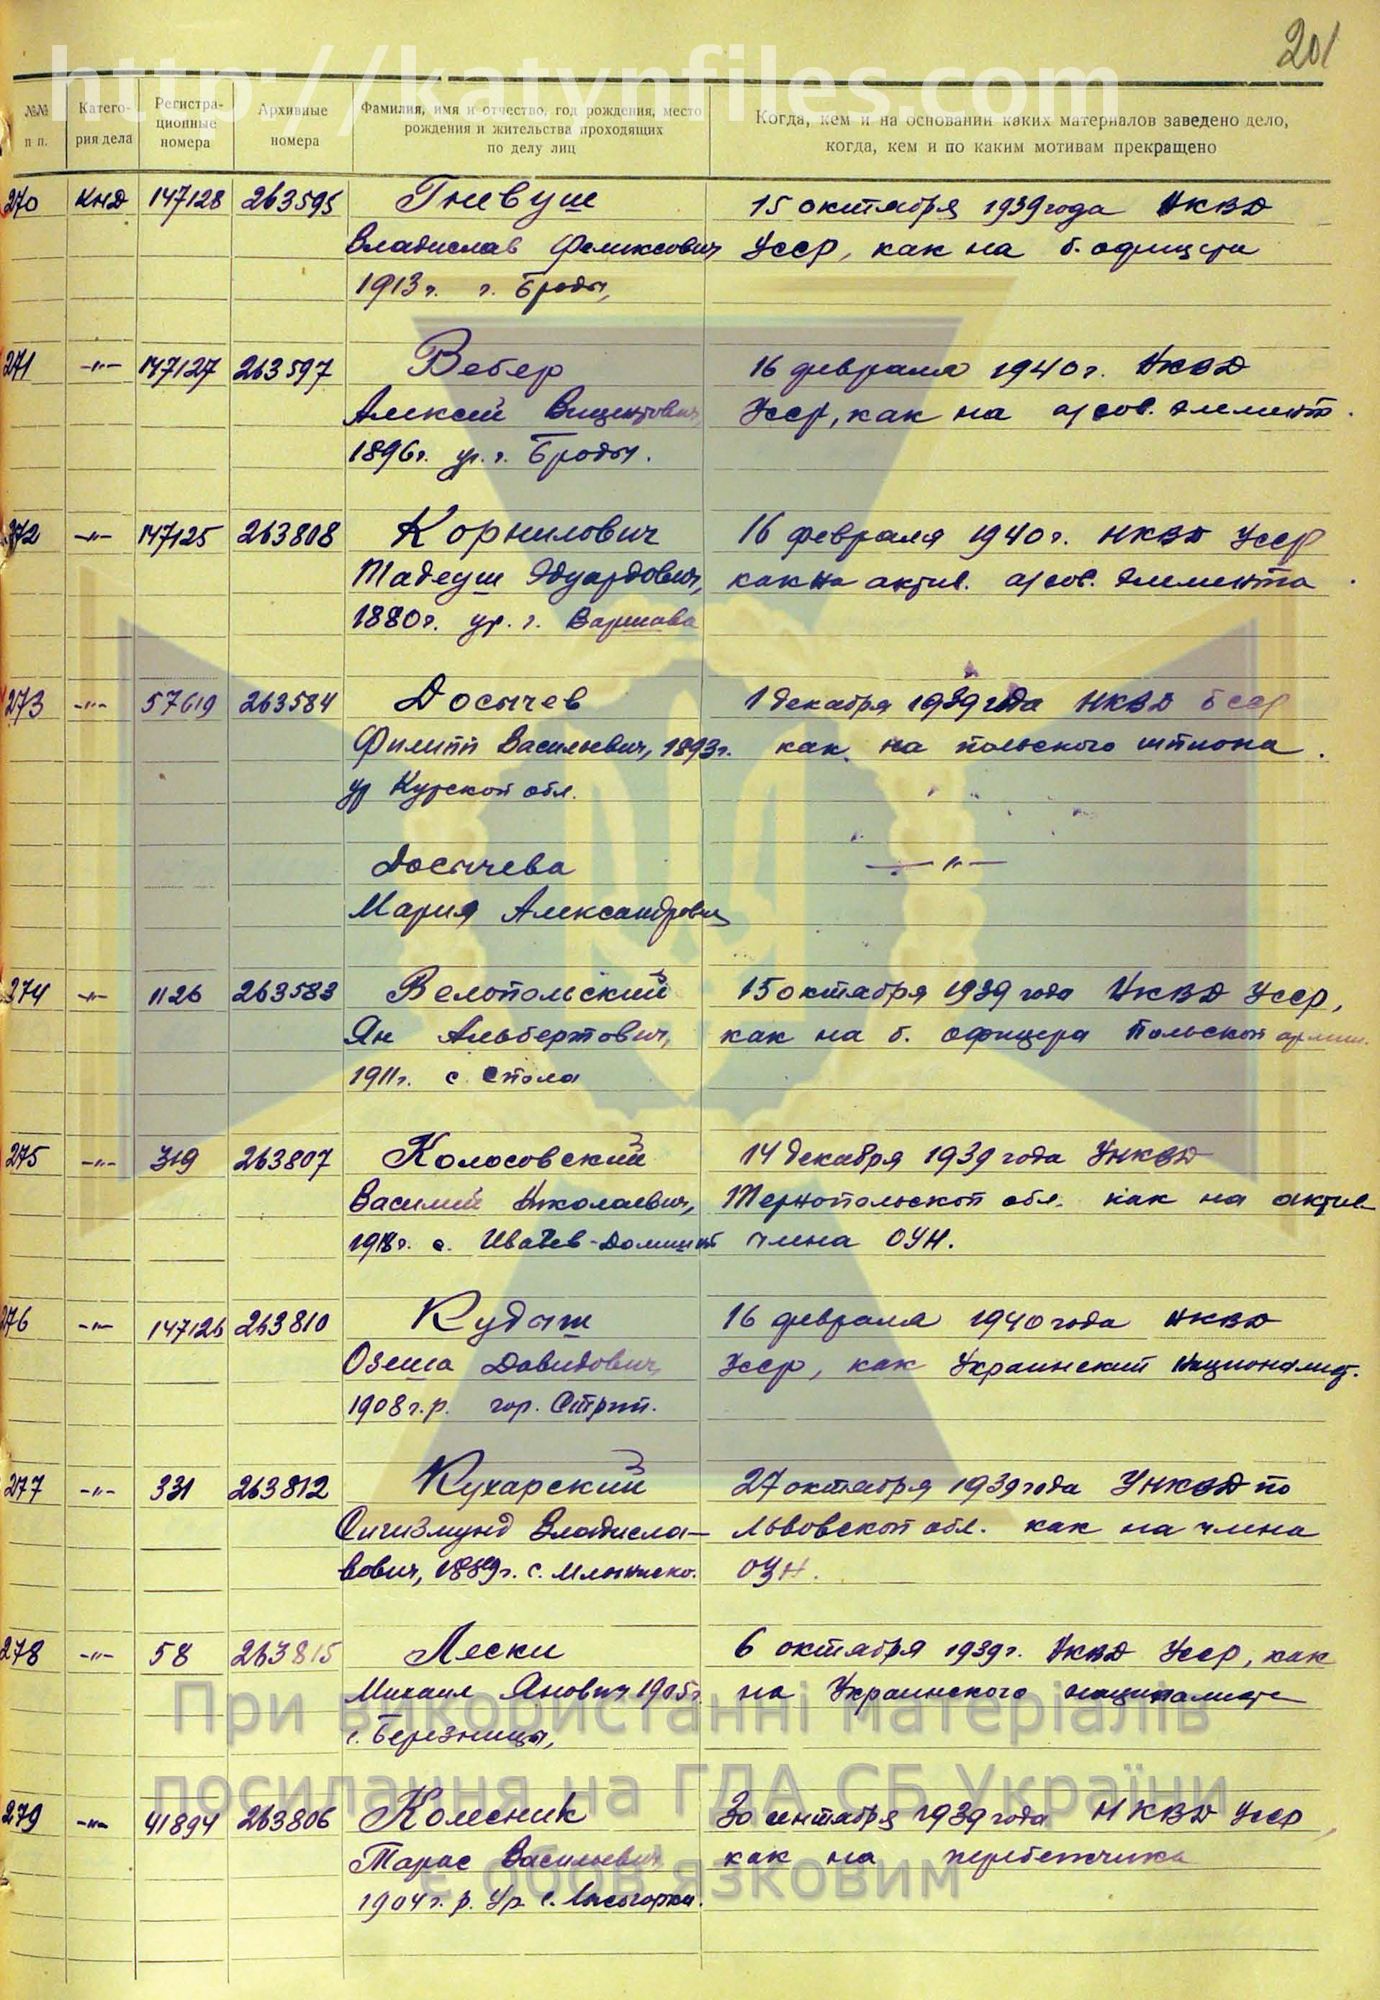 http://katynfiles.com
201
№№ п п.
Катего-рия дела
Регистра-ционные номера
Архивные номера
Фамилия, имя и отчество, год рождения, место рождения и жительства проходящих по делу лиц
Когда, кем и на основании каких материалов заведено дело, когда, кем и по каким мотивам прекращено
270 КНД 147128 263595 Гневуш 15 октября 1939 года НКВД
Владислав Феликсович УССР, как на б. офицера
1913 г. г. Броды,
271 -"- 147127 263597 Вебер 16 февраля 1940 г. НКВД
Алексей Вицентович, УССР, как на а/сов. элемент.
1896 г. ур. г. Броды.
272 -"- 147125 263808 Корнилович 16 февраля 1940 г. НКВД УССР
Тадеуш Эдуардович, как на актив. а/сов. элемента.
1880 г. ур. г. Варшава
273 -"- 57619 263584 Досычев 1 декабря 1939 года НКВД БССР
Филипп Васильевич, 1893 г. как на польского шпиона.
ур Курской обл.
Досычева -"-
Мария Александровна
274 -"- 1126 263583 Велопольский 15 октября 1939 года НКВД УССР,
Ян Альбертович, как на б. офицера Польской армии.
1911 г. с.
275 -"- 319 263807 Колосовский 14 декабря 1939 года УНКВД
Василий Николаевич, Тернопольской обл. как на актив.
1918 г. с. члена ОУН.
276 -"- 147126 263810 16 февраля 1940 года НКВД
Давидович, УССР, как Украинский националист.
1908 г.р. гор. Стрый.
277 -"- 331 263812 Кухарский 27 октября 1939 года УНКВД по
Сигизмунд Владисла- Львовской обл. как на члена
вович, 1889 г. с. ОУН.
278 -"- 58 263815 Лески 6 октября 1939 г. НКВД УССР, как
Михаил Янович 1905 г. на Украинского националиста
с. Березницы,
279 -"- 41894 263806 Колесник 30 сентября 1939 года НКВД УССР,
Тарас Васильевич как на перебежчика
1904 г. р. Ур. с. Лысогорка.
При використанні матеріалів
посилання на ГДА СБ України
є обов'язковим